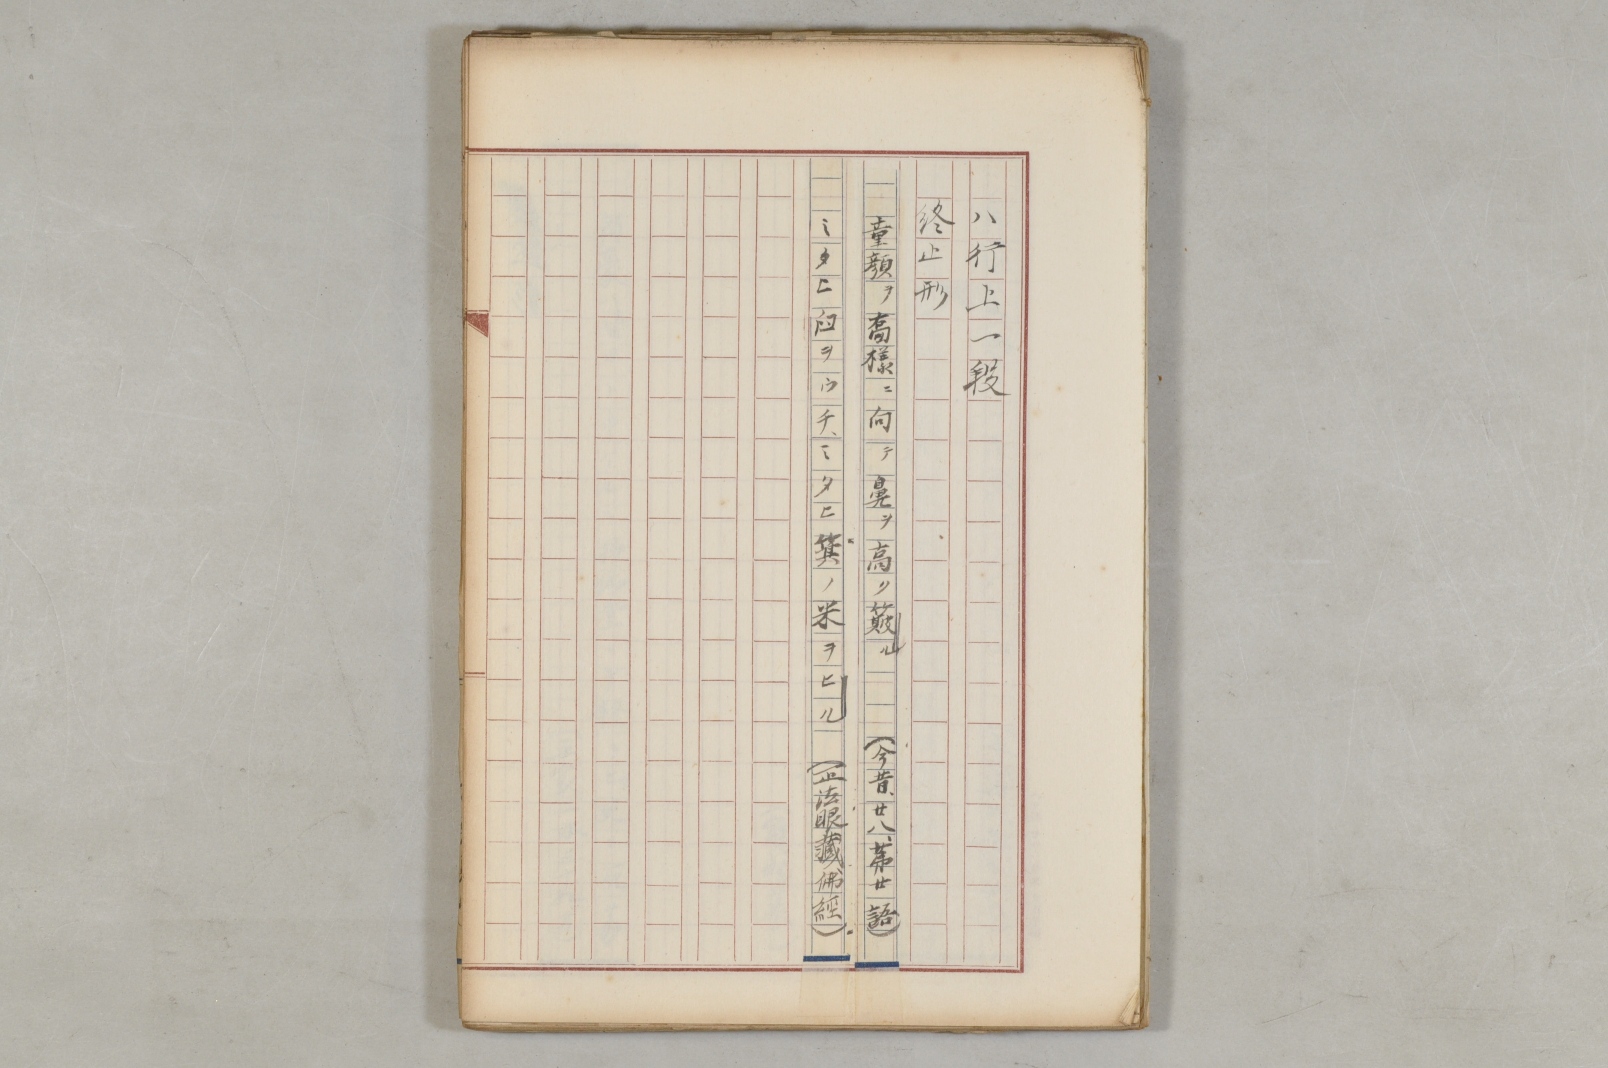 ハ行上一段
終止形
童顔ヲ喬様ニ向テ鼻ヲ高ク簸ル (今昔、廿八、第廿語)
ミタヒ臼ヲウチ、ミタヒ箕ノ米ヲヒル (正法眼藏、佛經)